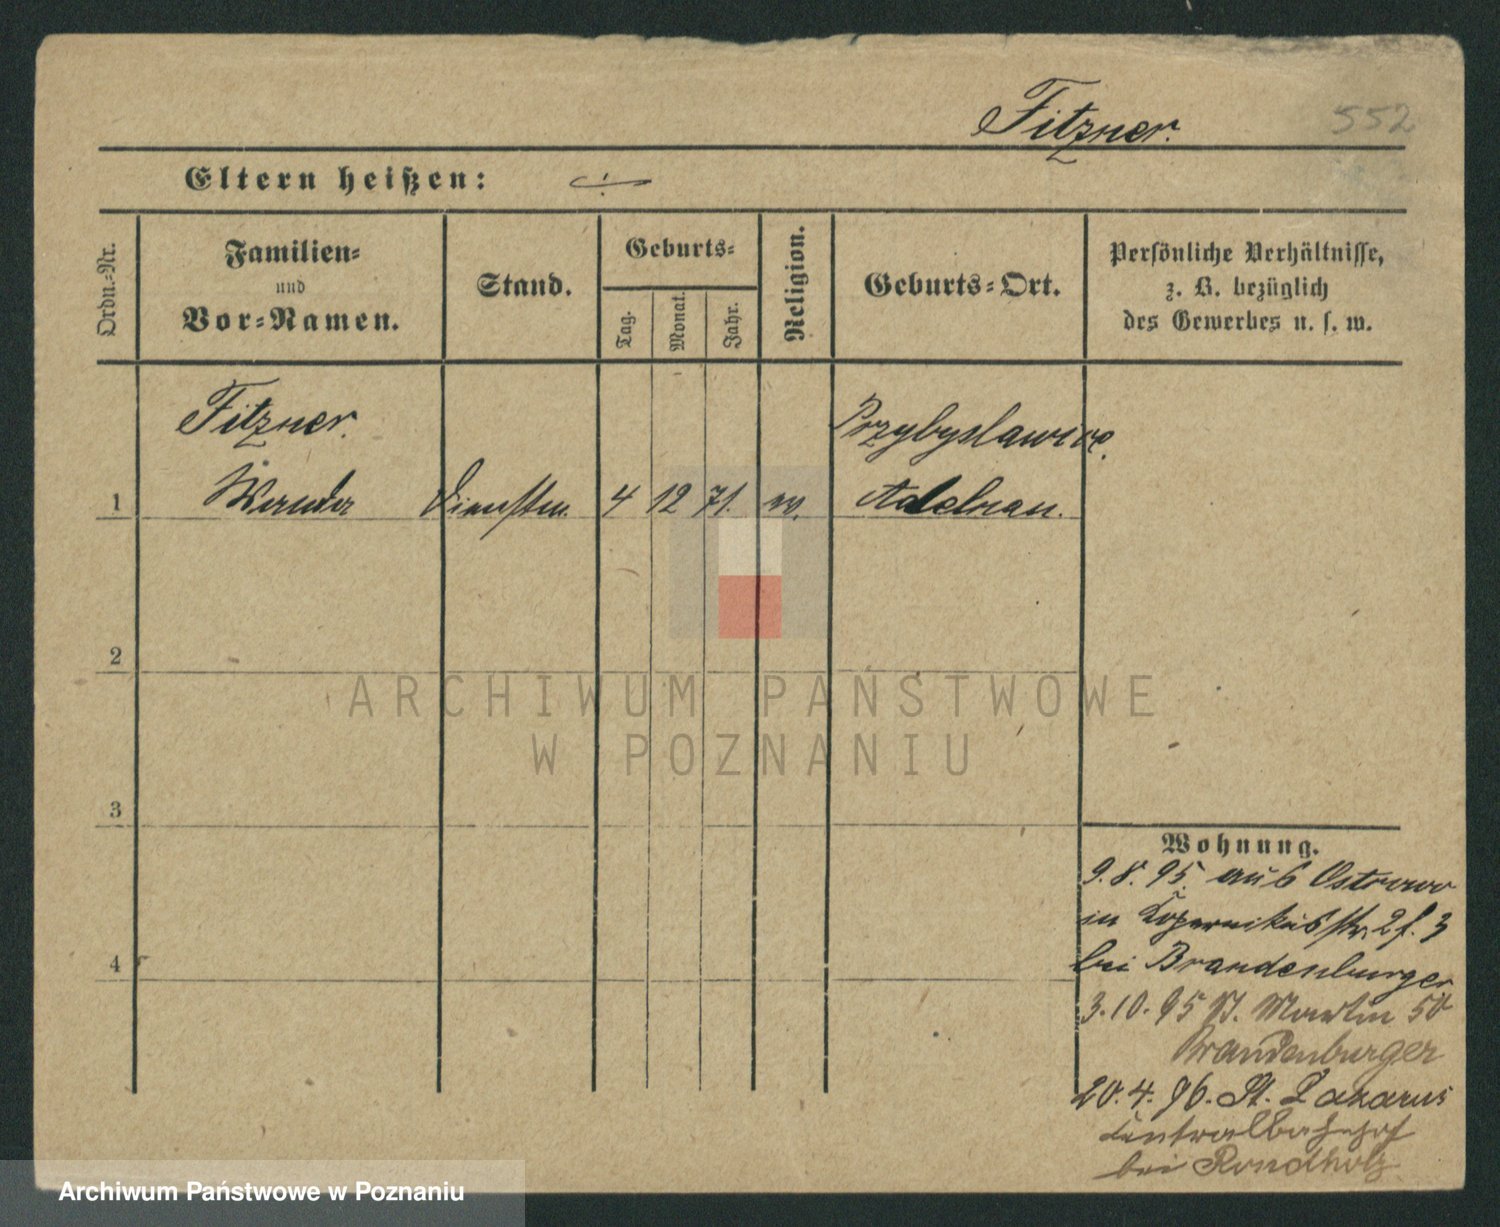 Fitzner.
552
Eltern heißen:
Ordn.-Nr.
Familien-
und
Vor-Namen.
Stand.
Geburts-
Tag.
Monat.
Jahr.
Religion.
Geburts-Ort.
Persönliche Verhältnisse,
z. B. bezüglich
des Gewerbes u. s. w.
Fitzner.
Przybyslawice.
1 4 12 71. Adelnau.
2
3
4
Wohnung.
9.8.95. aus Ostrowo
in Kopernikusstr. 2 f. 3
bei Brandenburger
3.10.95 St. Martin 50
Brandenburger
20.4.96. St. Lazarus
Centralbahnhof
bei Rondholz
ARCHIWUM PAŃSTWOWE
W POZNANIU
Archiwum Państwowe w Poznaniu